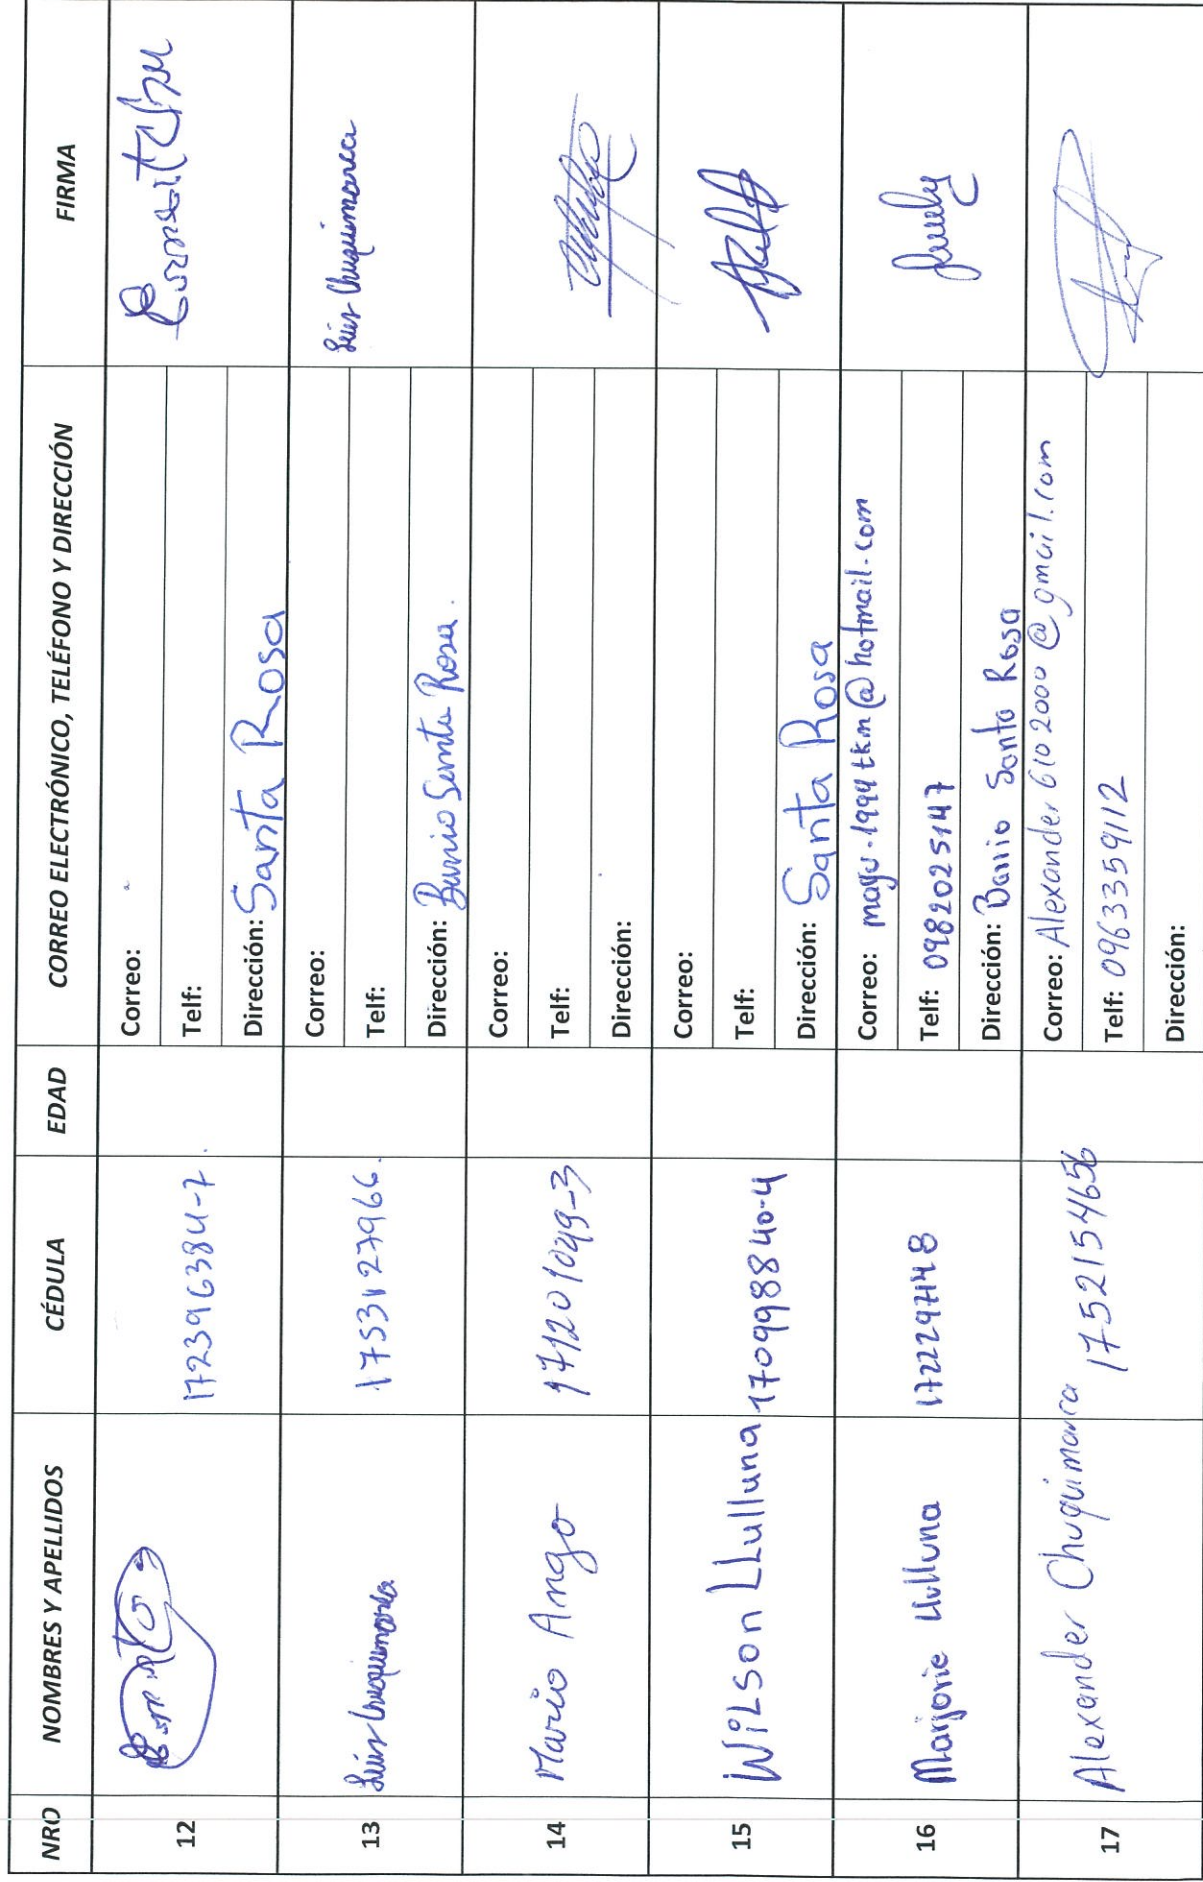 NRO NOMBRES Y APELLIDOS CÉDULA EDAD CORREO ELECTRÓNICO, TELÉFONO Y DIRECCIÓN FIRMA
12 172396384-7. Correo:
Telf:
Dirección: Santa Rosa
13 Luis Chuquimarca 1753127966. Correo: Luis Chuquimarca
Telf:
Dirección: Barrio Santa Rosa.
14 Mario Ango 171201049-3 Correo:
Telf:
Dirección:
15 WiLSon LLulluna 170998840-4 Correo:
Telf:
Dirección: Santa Rosa
16 Marjorie Llulluna 1722297148 Correo: mayu-1994tkm@hotmail.com
Telf: 0982025147
Dirección: Barrio Santa Rosa
17 Alexander Chuquimarca 1752154656 Correo: Alexander6102000@gmail.com
Telf: 0963359112
Dirección: